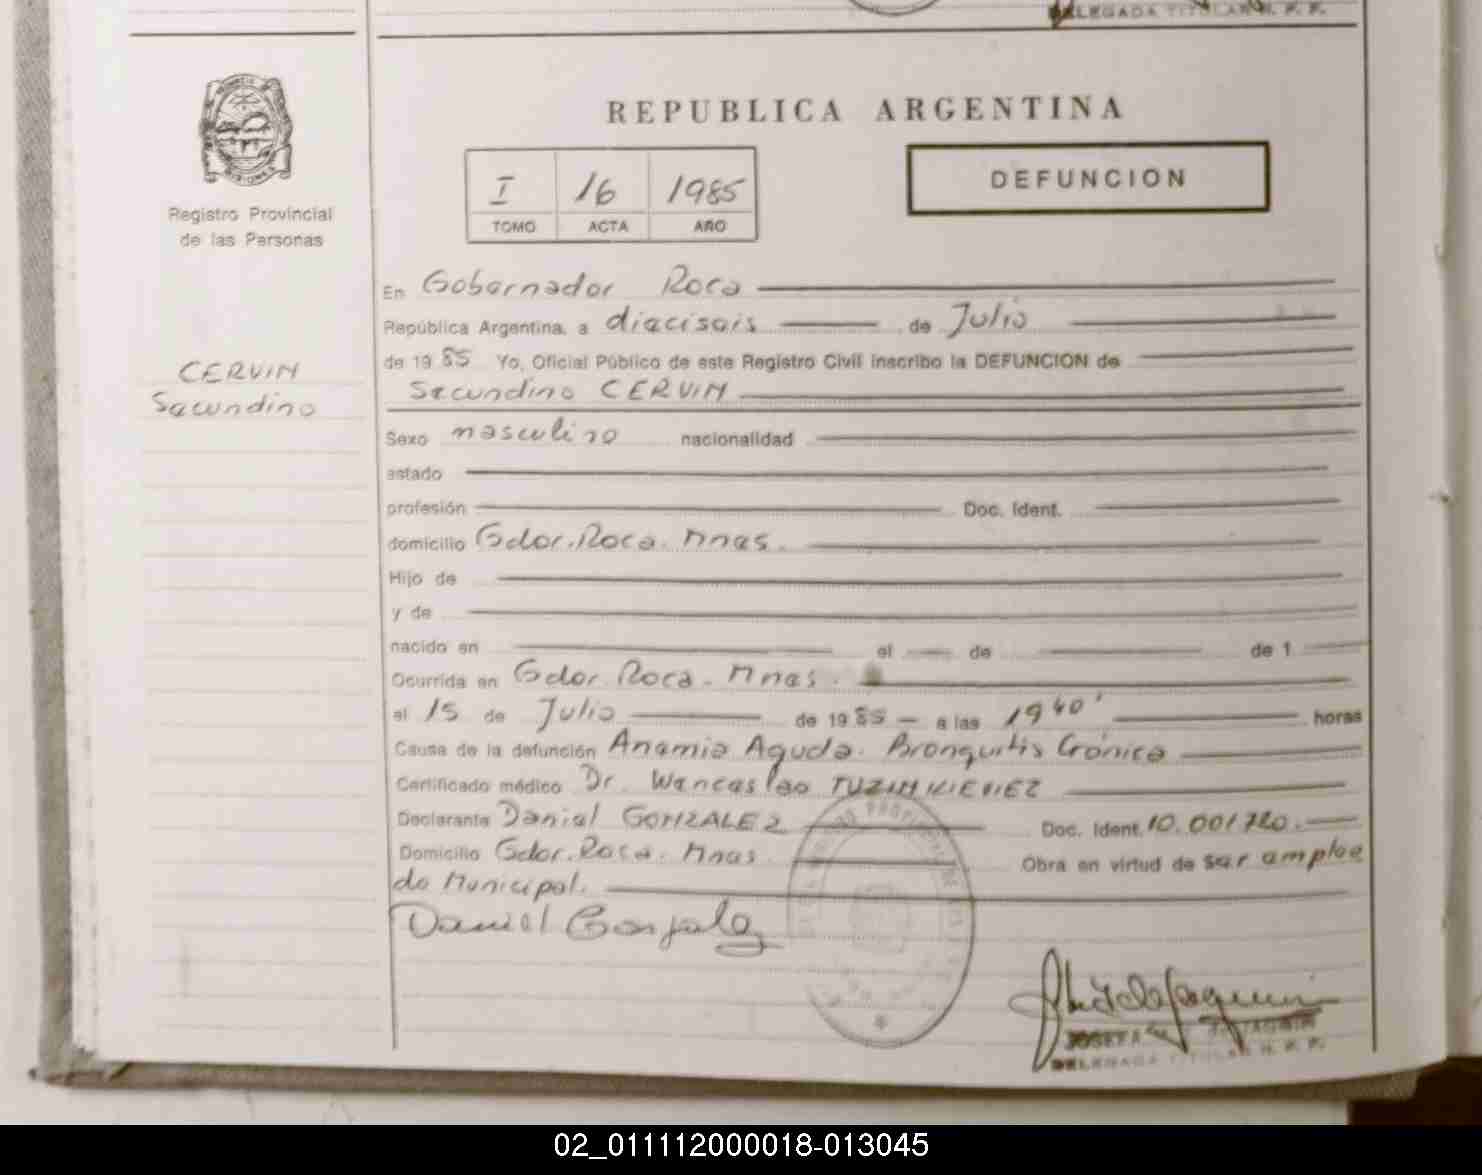 DELEGADA TITULAR H. P. P.
REPUBLICA ARGENTINA
I 16 1985
TOMO ACTA AÑO
DEFUNCION
Registro Provincial
de las Personas
CERVIN
Secundino
En Gobernador Roca
República Argentina, a dieciseis de Julio
de 1985 Yo, Oficial Público de este Registro Civil inscribo la DEFUNCION de
Secundino CERVIN
Sexo masculino nacionalidad
estado
profesión Doc. Ident.
domicilio Gdor. Roca. Mnes.
Hijo de
y de
nacido en el de de 1
Ocurrida en Gdor. Roca. Mnes.
el 15 de Julio de 1985 a las 19 40' horas
Causa de la defunción Anemia Aguda. Bronquitis Crónica
Certificado médico Dr. Wenceslao TUZINKIEVIEZ
Declarante Daniel GONZALEZ Doc. Ident. 10.001720.
Domicilio Gdor. Roca. Mnes. Obra en virtud de ser emplea
do Municipal.
Daniel Gonzalez
JOSEFA
DELEGADA TITULAR H. P. P.
02_011112000018-013045